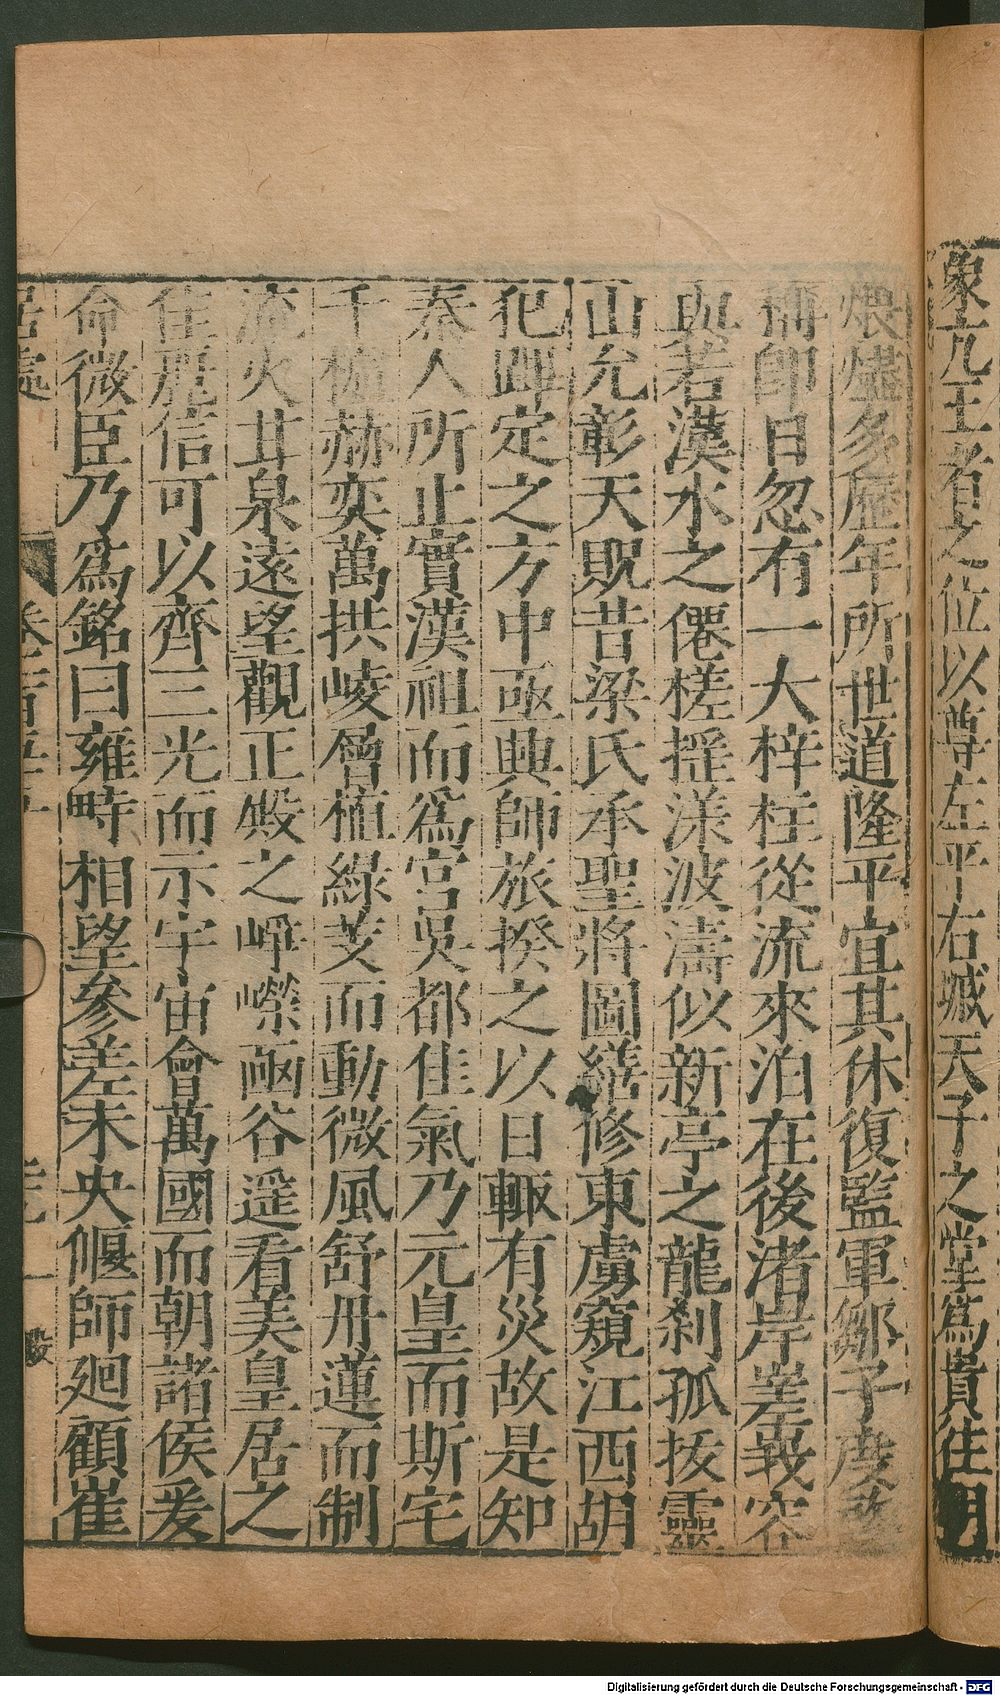 象亢王者之位以尊左平右墄天子之堂爲貴往朝
煨燼多歷年所世道隆平宜其休復監軍鄒子度啓
稱即日忽有一大梓柱從流來泊在後渚岸嵳峩容
與若漢水之僊槎搖漾波濤似新亭之龍刹孤拔靈
山允彰天貺昔梁氏承聖將圖繕修東虜窺江西胡
犯蹕定之方中亟興師旅揆之以日輙有災故是知
秦人所止實漢祖而爲宮吳都佳氣乃元皇而斯宅
千櫨赫奕萬拱崚層植綠芰而動微風舒丹蓮而制
流火甘泉遠望觀正殿之崢嶸函谷遥看美皇居之
佳麗信可以齊三光而示宇宙會萬國而朝諸侯爰
命微臣乃爲銘曰雍畤相望參差未央偃師廻顧崔
居處
Digitalisierung gefördert durch die Deutsche Forschungsgemeinschaft - DFG